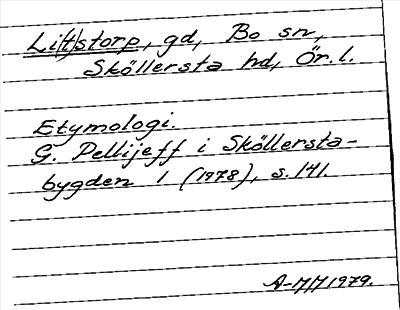 Li(t)storp, gd, Bo sn,
Sköllersta hd, Ör. l.
Etymologi.
G. Pellijeff i Sköllersta-
bygden 1 (1978), s. 141.
1979.